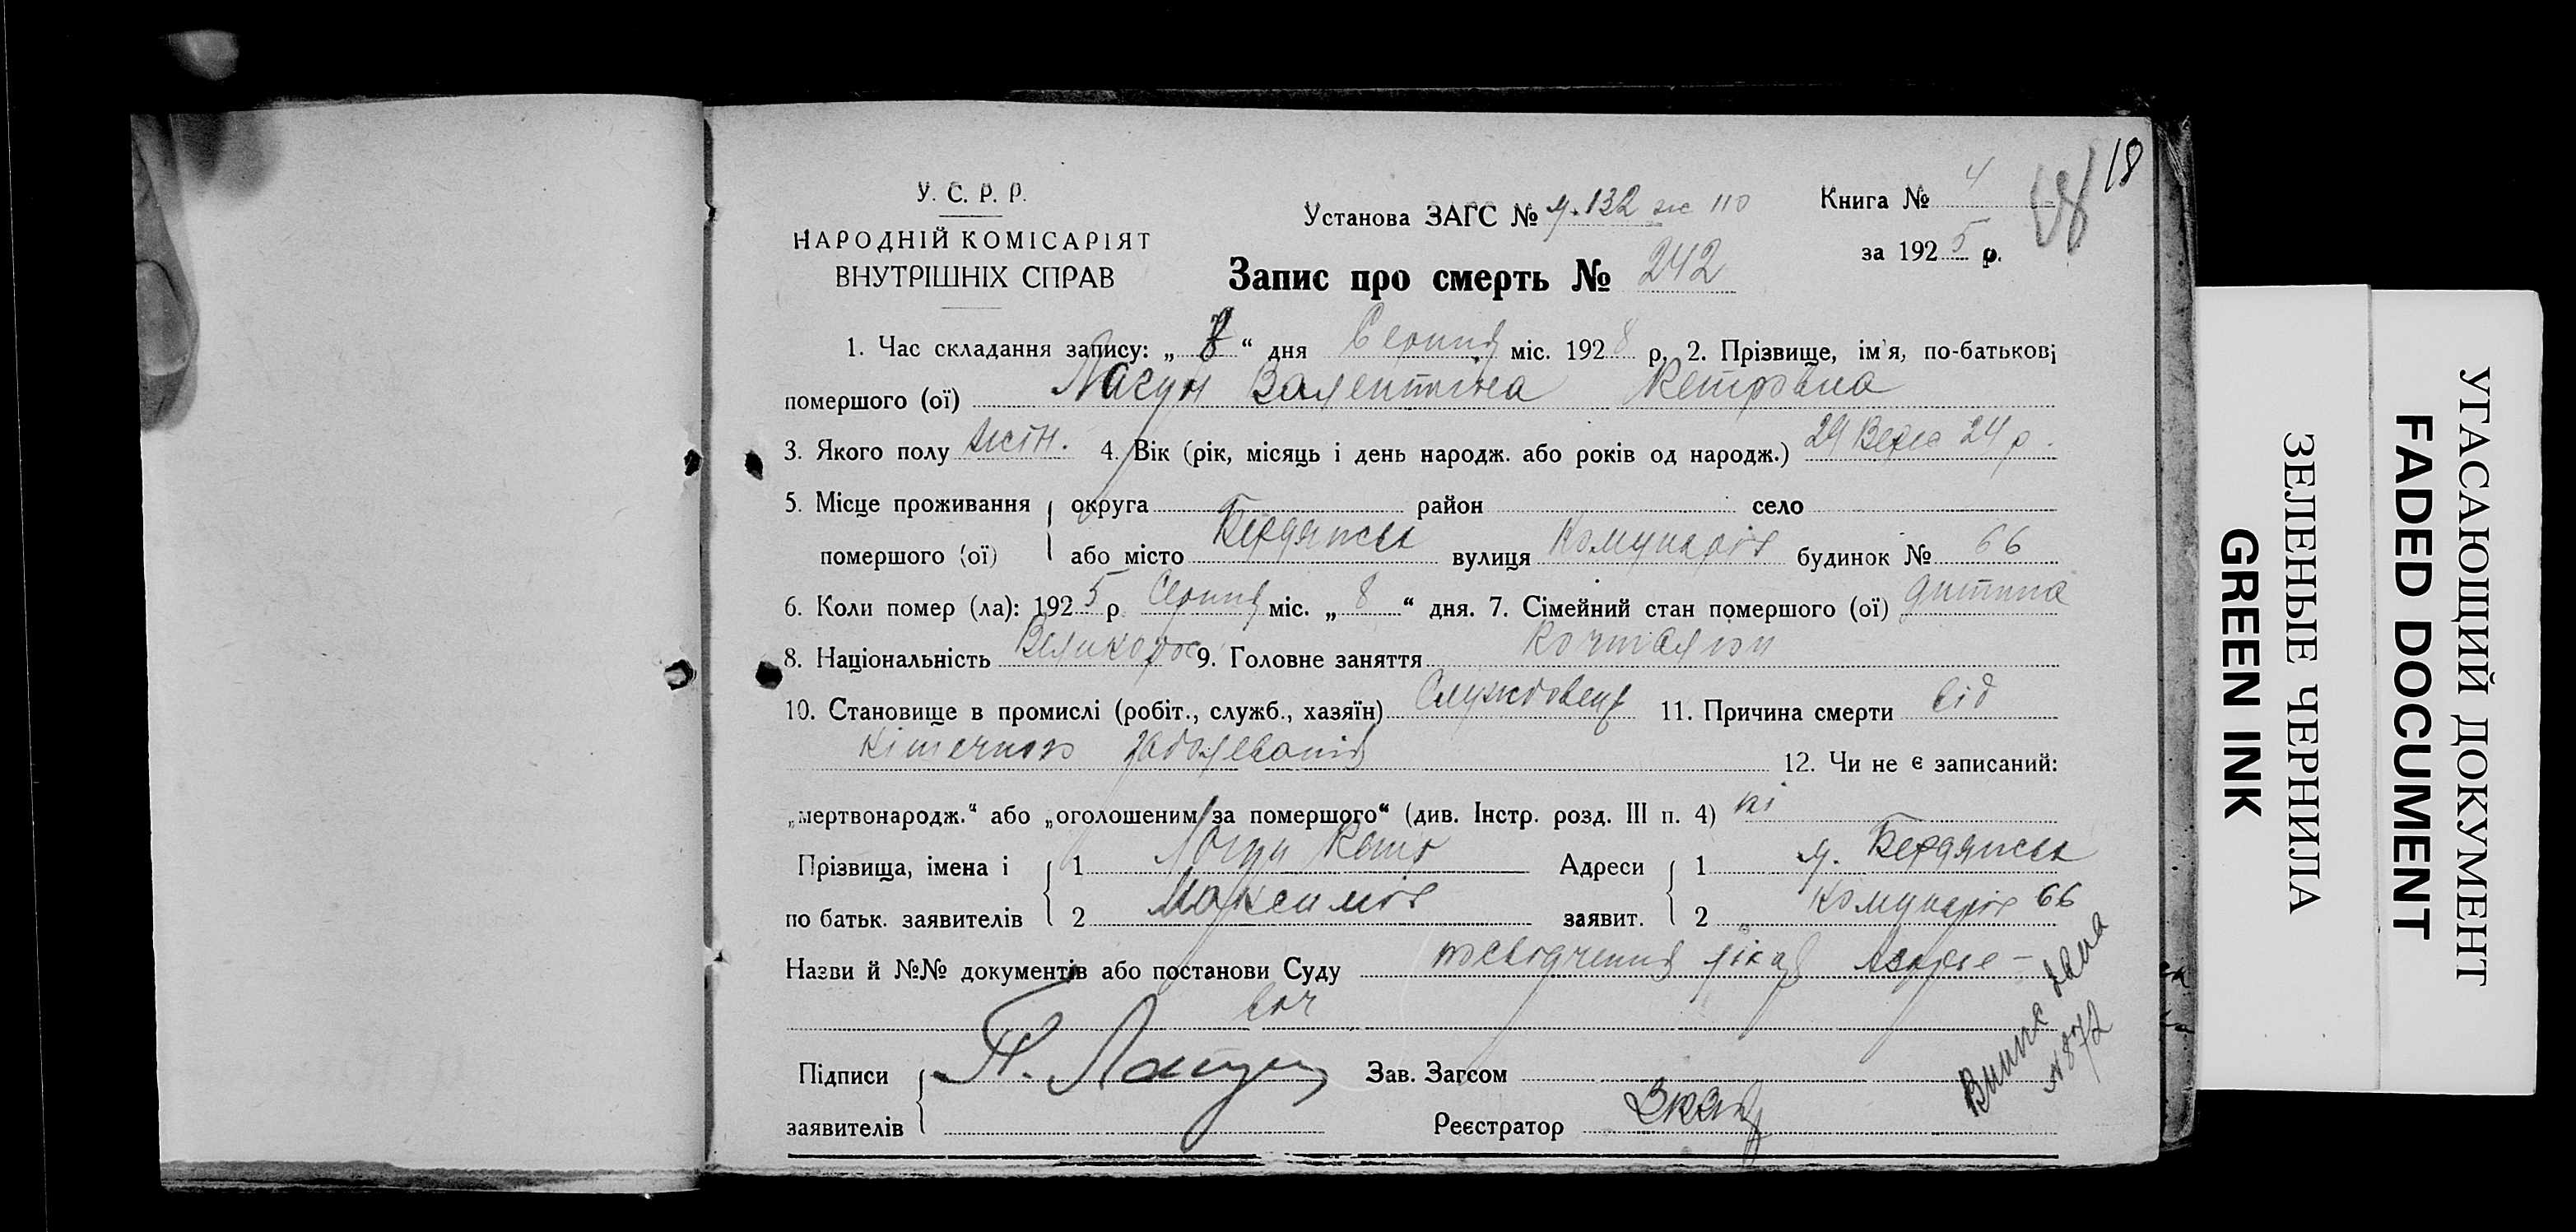 18
У. С. Р. Р.
НАРОДНІЙ КОМІСАРІЯТ
ВНУТРІШНІХ СПРАВ
Установа ЗАГС № 132 110
Книга № 4
за 1925 р.
Запис про смерть № 242
1. Час складання запису: „ “ дня Серпня міс. 1928 р. 2. Прізвище, ім'я, по-батькові
помершого (ої) Лагун Валентина Петровна
3. Якого полу жін. 4. Вік (рік, місяць і день народж. або років од народж.) 24 р.
5. Місце проживання округа район село
помершого (ої) або місто Бердянськ вулиця Комунарів будинок № 66
6. Коли помер (ла): 1925 р Серпня міс. „ 8 “ дня. 7. Сімейний стан помершого (ої) дитина
8. Національність Великорос 9. Головне заняття
10. Становище в промислі (робіт., служб., хазяїн) Службовець 11. Причина смерти від
12. Чи не є записаний:
„мертвонародж.“ або „оголошеним за помершого“ (див. Інстр. розд. III п. 4) ні
Прізвища, імена і 1 Лагун Петр Адреси 1 м. Бердянськ
по батьк. заявителів 2 Максимів заявит. 2 Комунарів 66
Назви й №№ документів або постанови Суду посвідчення
Підписи П. Лагун Зав. Загсом
заявителів Реєстратор
дана
УГАСАЮЩИЙ ДОКУМЕНТ
FADED DOCUMENT
ЗЕЛЕНЫЕ ЧЕРНИЛА
GREEN INK